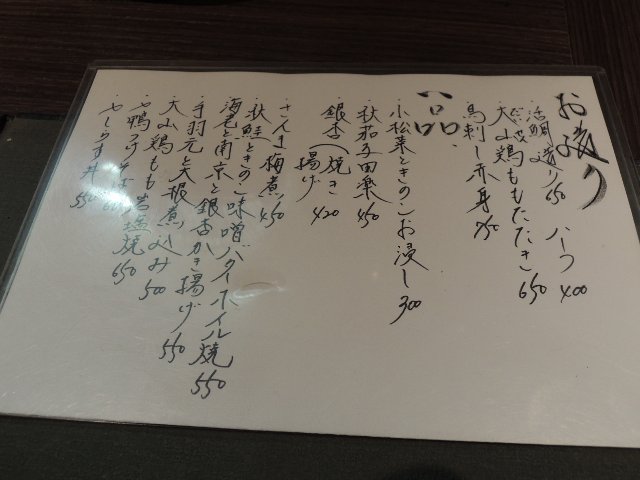 お造り
・活鯛造り 650 ハーフ 400
・大山鶏ももたたき 650
・馬刺し赤身
一品
・小松菜ときのこお浸し 300
・秋茄子田楽 450
・銀杏(焼き 揚げ 420
・さんま梅煮 450
・秋鮭ときのこ味噌バターホイル焼 550
・海老と南京と銀杏かき揚げ 550
・手羽元と大根煮込み 500
・大山鶏もも岩塩焼 650
・鴨つけそば
・しらす丼 550